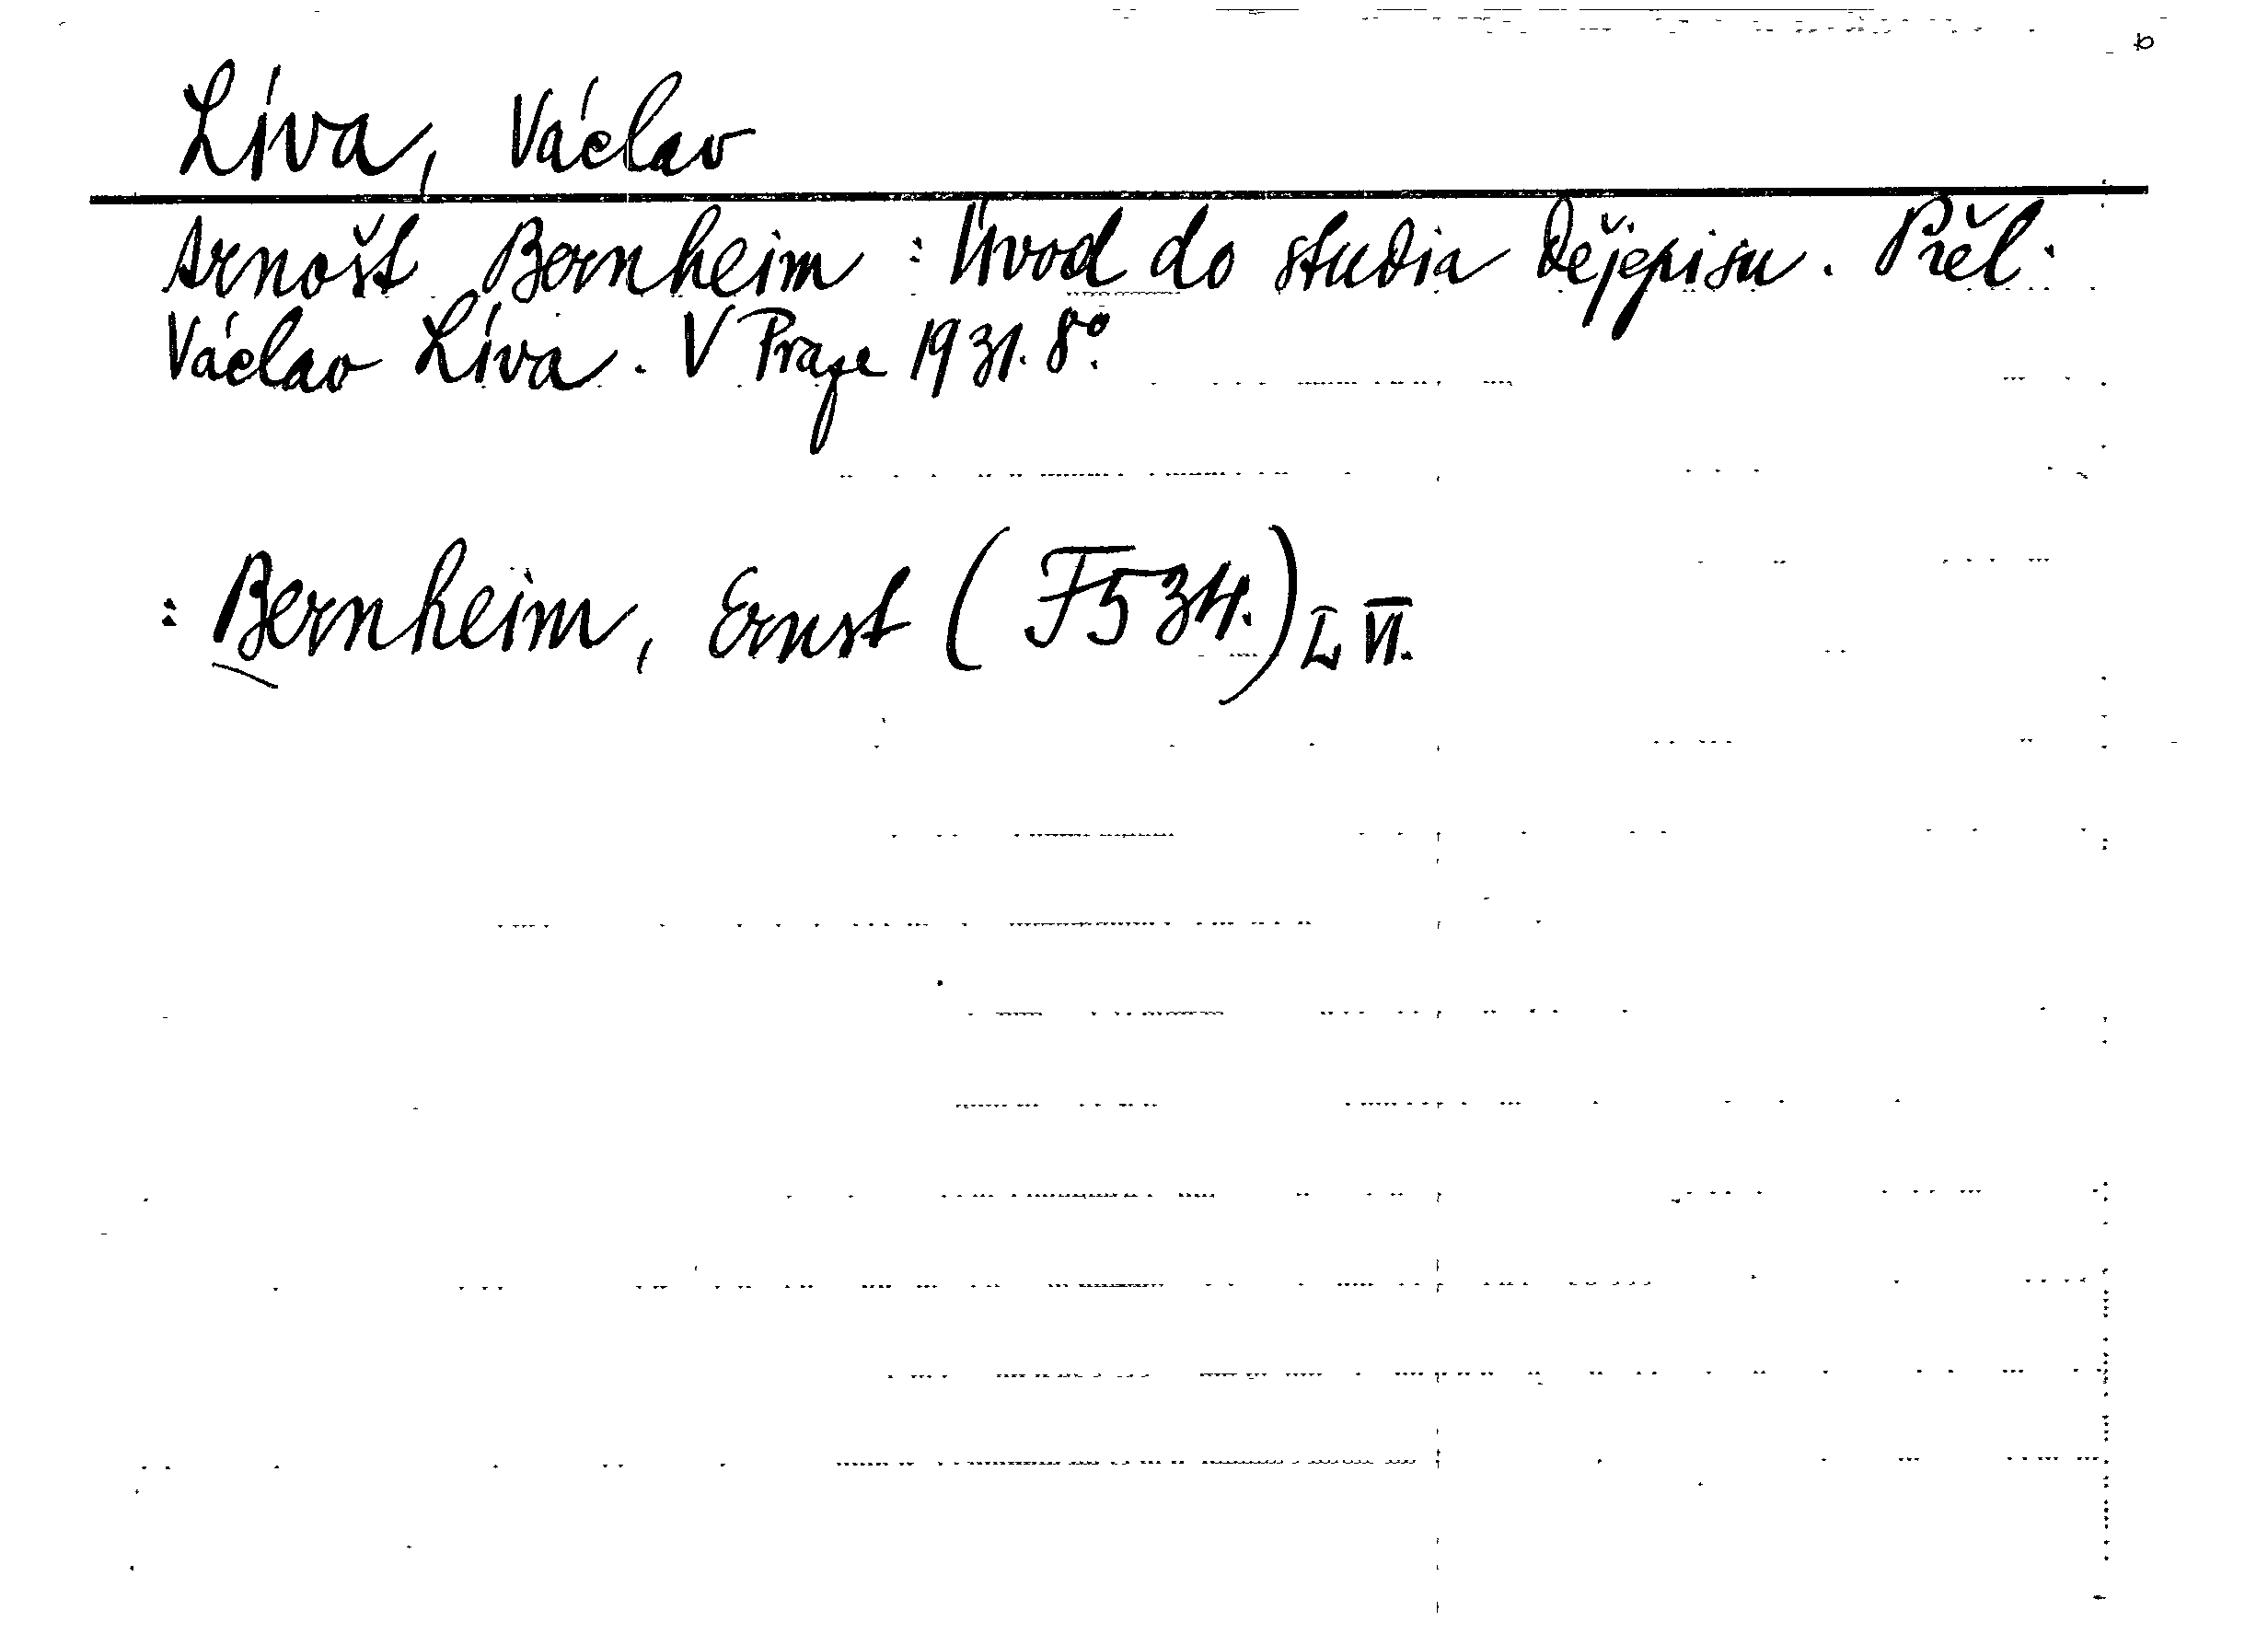 Líva, Václav
Arnošt Bernheim: Úvod do studia dějepisu. Přel.
Václav Líva. V Praze 1931. 8°.
: Bernheim, Ernst (F534.)